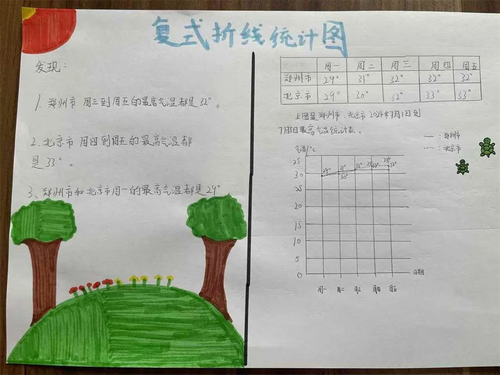 复式折线统计图
发现：
1、郑州市 周三到周五的最高气温都是32°。
2、北京市 周四到周五的最高气温都
是33°。
3、郑州市和北京市周一的最高气温都是29°。
周一 周二 周三 周四 周五
郑州市 29° 31° 32° 32° 32°
北京市 29° 30° 32° 33° 33°
上图是郑州市、北京市
最高气温统计表。
郑州市
北京市
气温/℃
25
30
25
20
15
10
5
0
日期
周一 周二 周三 周四 周五